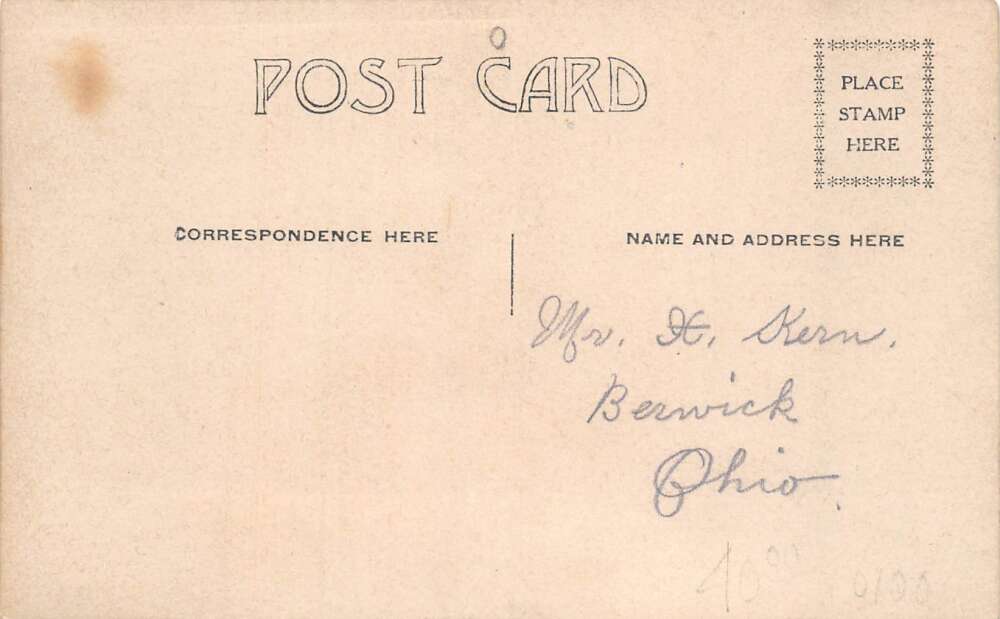 POST CARD
PLACE
STAMP
HERE
CORRESPONDENCE HERE
NAME AND ADDRESS HERE
Mr. H. Kern.
Berwick
Ohio